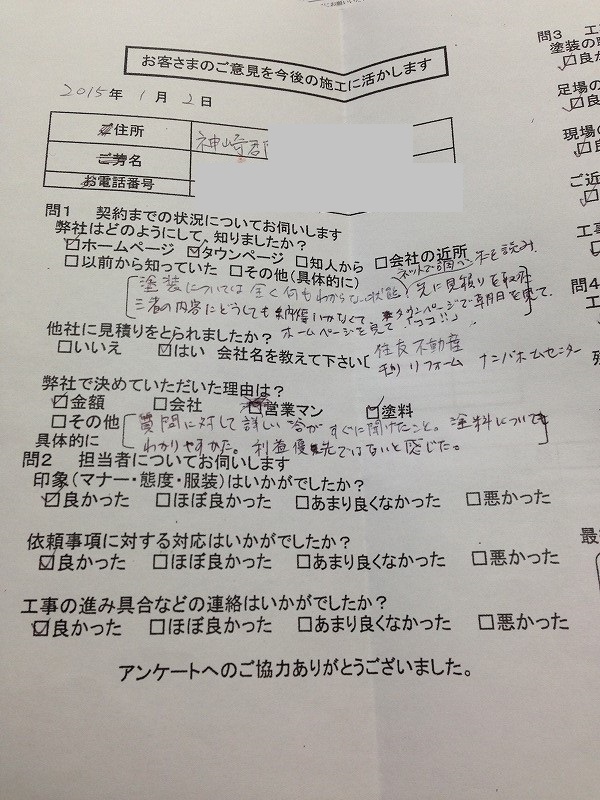 お客さまのご意見を今後の施工に活かします
2015年 1月 2日
ご住所 神崎郡
ご芳名
お電話番号
問1 契約までの状況についてお伺いします
弊社はどのようにして、知りましたか?
☑ホームページ ☑タウンページ □知人から □会社の近所
□以前から知っていた □その他(具体的に)
塗装については全く何もわからない状態! 先に見積りを取った
三者の内容にどうしても納得いかなくて、タウンページで朝日を見て、
ホームページを見て「ココ!!」
他社に見積りをとられましたか?
□いいえ ☑はい 会社名を教えて下さい 住友不動産
リフォーム ナンバホームセンター
弊社で決めていただいた理由は?
☑金額 □会社 営業マン ☑塗料
□その他 質問に対して詳しい答がすぐに聞けたこと。塗料についても
具体的に わかりやすかった。利益優先ではないと感じた。
問2 担当者についてお伺いします
印象(マナー・態度・服装)はいかがでしたか?
☑良かった □ほぼ良かった □あまり良くなかった □悪かった
依頼事項に対する対応はいかがでしたか?
☑良かった □ほぼ良かった □あまり良くなかった □悪かった
工事の進み具合などの連絡はいかがでしたか?
☑良かった □ほぼ良かった □あまり良くなかった □悪かった
アンケートへのご協力ありがとうございました。
問3 工
塗装の
☑良か
足場の
現場の
ご近
工事
問4
最